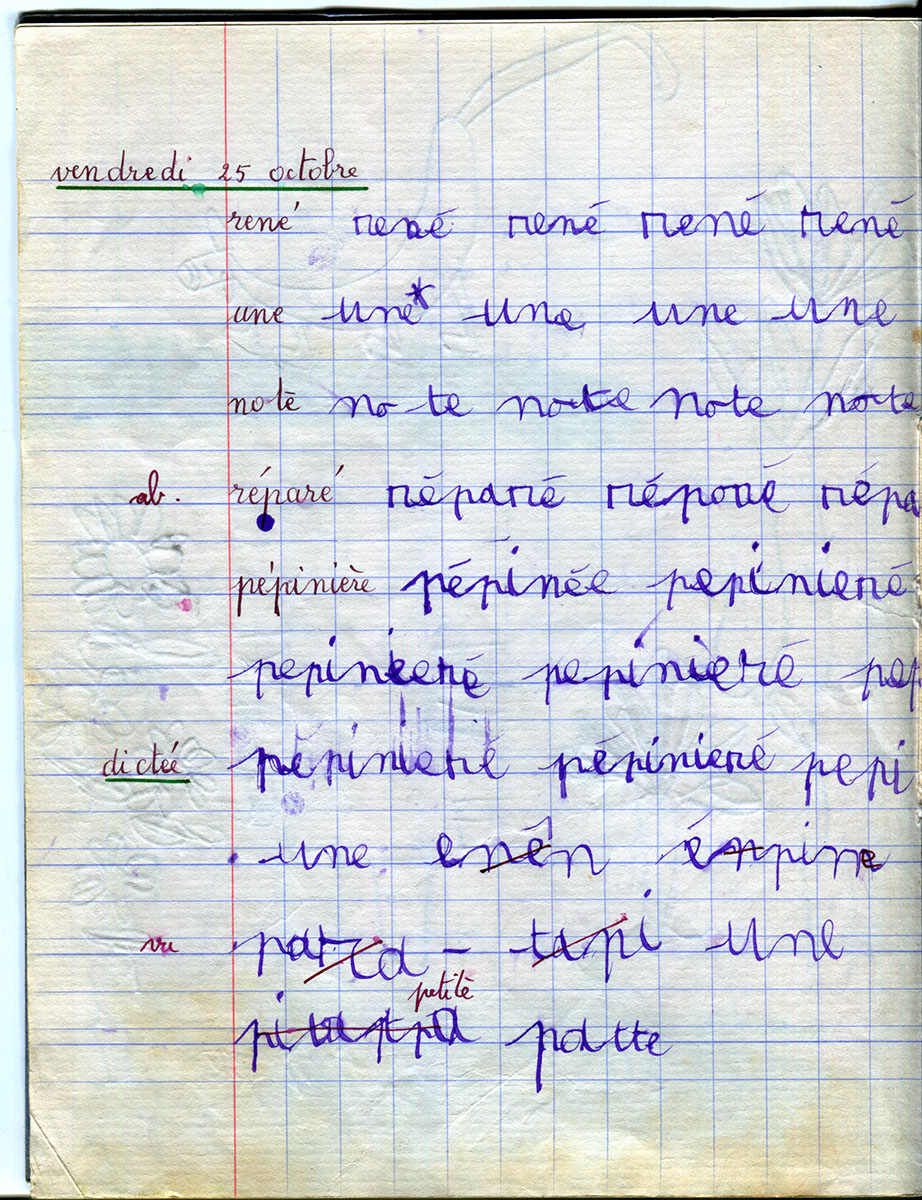 vendredi 25 octobre
rené rené rené rené rené
une une* une une une
notè no te note note note
ab. réparé réparé répoué répa
pépinière pépinée pepinieré
pepinieré pepinieré pep
dictéé pépinieré pépinieré pepi
une enén énpine
vu parta - tapi une
petitè
patte